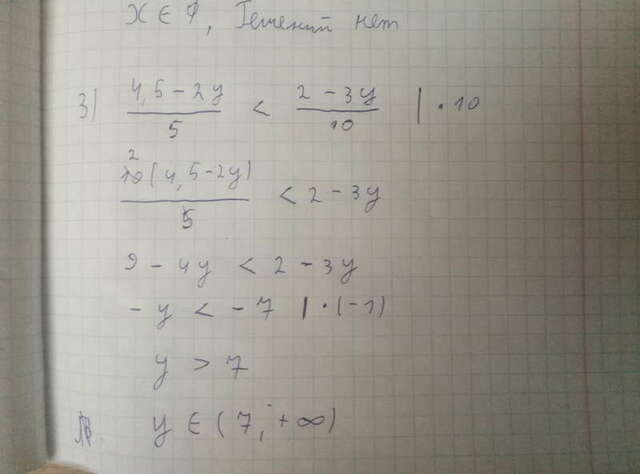 X ∈ ∅, Решений нет
3) (4,5 - 2y)/5 < (2 - 3y)/10 | · 10
10 2 (4,5 - 2y)/5 < 2 - 3y
9 - 4y < 2 - 3y
- y < - 7 | · (-1)
y > 7
y ∈ (7; +∞)